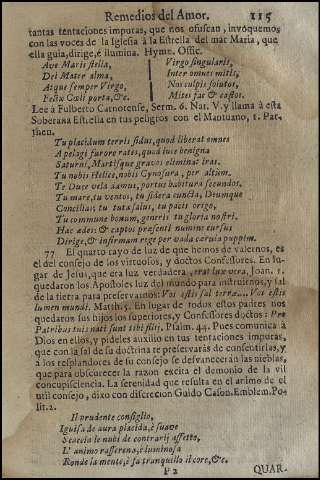 Remedios del Amor. 115
tantas tentaciones impuras, que nos ofuscan, invoquemos
con las voces de la Iglesia à la Estrella del mar Maria, que
ella guia, dirige, è ilumina. Hymn. Offic.
Ave Maris stella,
Dei Mater alma,
Atque semper Virgo,
Felix Cœli porta, &c.
Virgo singularis,
Inter omnes mitis,
Nos culpis solutos,
Mites fac & castos.
Lee à Fulberto Carnotense, Serm. 6. Nat. V. y llama à esta
Soberana Estrella en tus peligros con el Mantuano, 1. Par-
then.
Tu placidum terris sidus, quod liberat omnes
A pelagi furore rates, quod luce benigna
Saturni, Martisque graves eliminat iras.
Tu nobis Helice, nobis Cynosura, per altum.
Te Duce vela damus, portus habitura secundos.
Tu mare, tu ventos, tu sidera cuncta, Deumque
Concilias; tu tuta salus, tu pacis origo,
Tu commune bonum, generis tu gloria nostri.
Hac ades: & captos præsenti numine cursus
Dirige, & infirmam rege per vada cœrula puppim.
77 El quarto rayo de luz de que hemos de valernos, es
el del consejo de los virtuosos, y doctos Confessores. En lu-
gar de Jesus, que era luz verdadera, erat lux vera, Joan. 1.
quedaron los Apostoles luz del mundo para instruirnos, y sal
de la tierra para preservarnos: Vos estis sal terræ.... Vos estis
lumen mundi. Matth. 5. En lugar de todos estos padres nos
quedaron sus hijos los superiores, y Confessores doctos: Pro
Patribus tuis nati sunt tibi filij, Psalm. 44. Pues comunica à
Dios en ellos, y pideles auxilio en tus tentaciones impuras,
que con la sal de su doctrina te preservaràs de consentirlas, y
à los resplandores de su consejo se desvaneceràn las nieblas,
que para obscurecer la razon excita el demonio de la vil
concupisciencia. La serenidad que resulta en el animo de el
util consejo, dixo con discrecion Guido Cason. Emblem. Po-
lit. 2.
Il prudente consiglio,
Iguisa de aura placida, è suave
Scaccia le nubi de contrarij affetto,
L' animo rasserena, è luminosa
Ronde la mente, è fa tranquillo il core, &c.
P 2 QUAR-